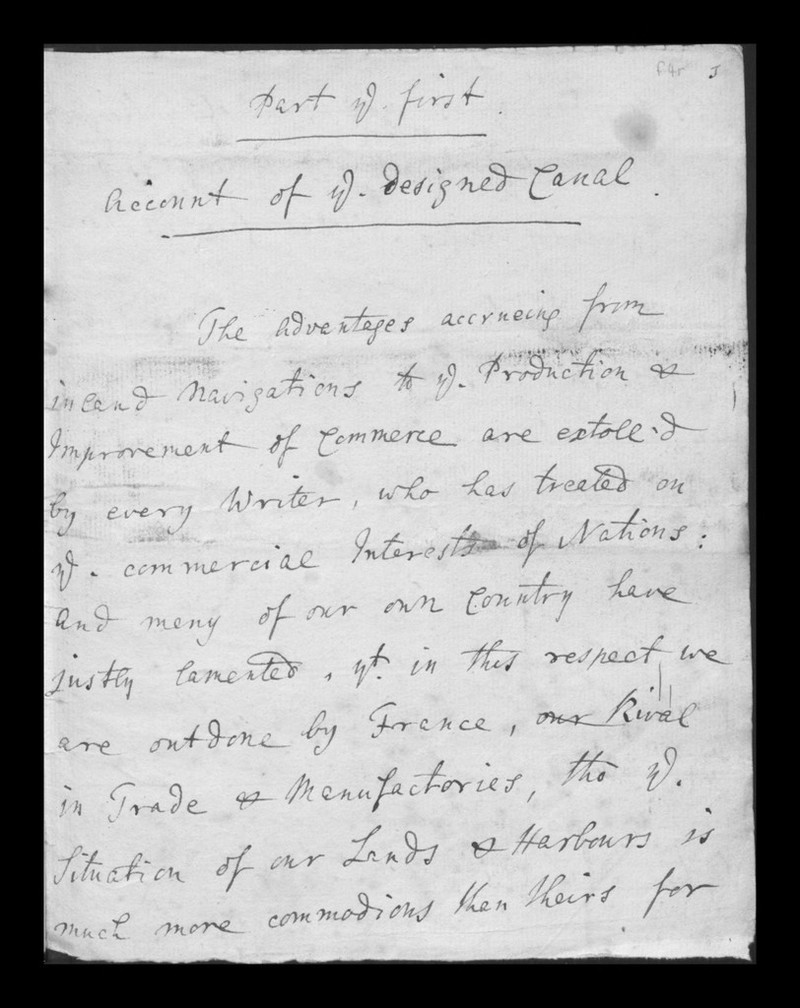 f 4r 5
Part ye. first.
Account of ye. designed Canal.
The advanteges accrueing from
inland Navigations to ye. Production &
Improvement of Commerce are extoll'd
by every Writer, who has treated on
ye. commercial Interests of Nations:
And meny of our own Country have
justly lamented, yt. in this respect we
are outdone by France, our Rival
in Trade & Manufactories, tho ye.
Situation of our Lands & Harbours is
much more commodious than theirs for